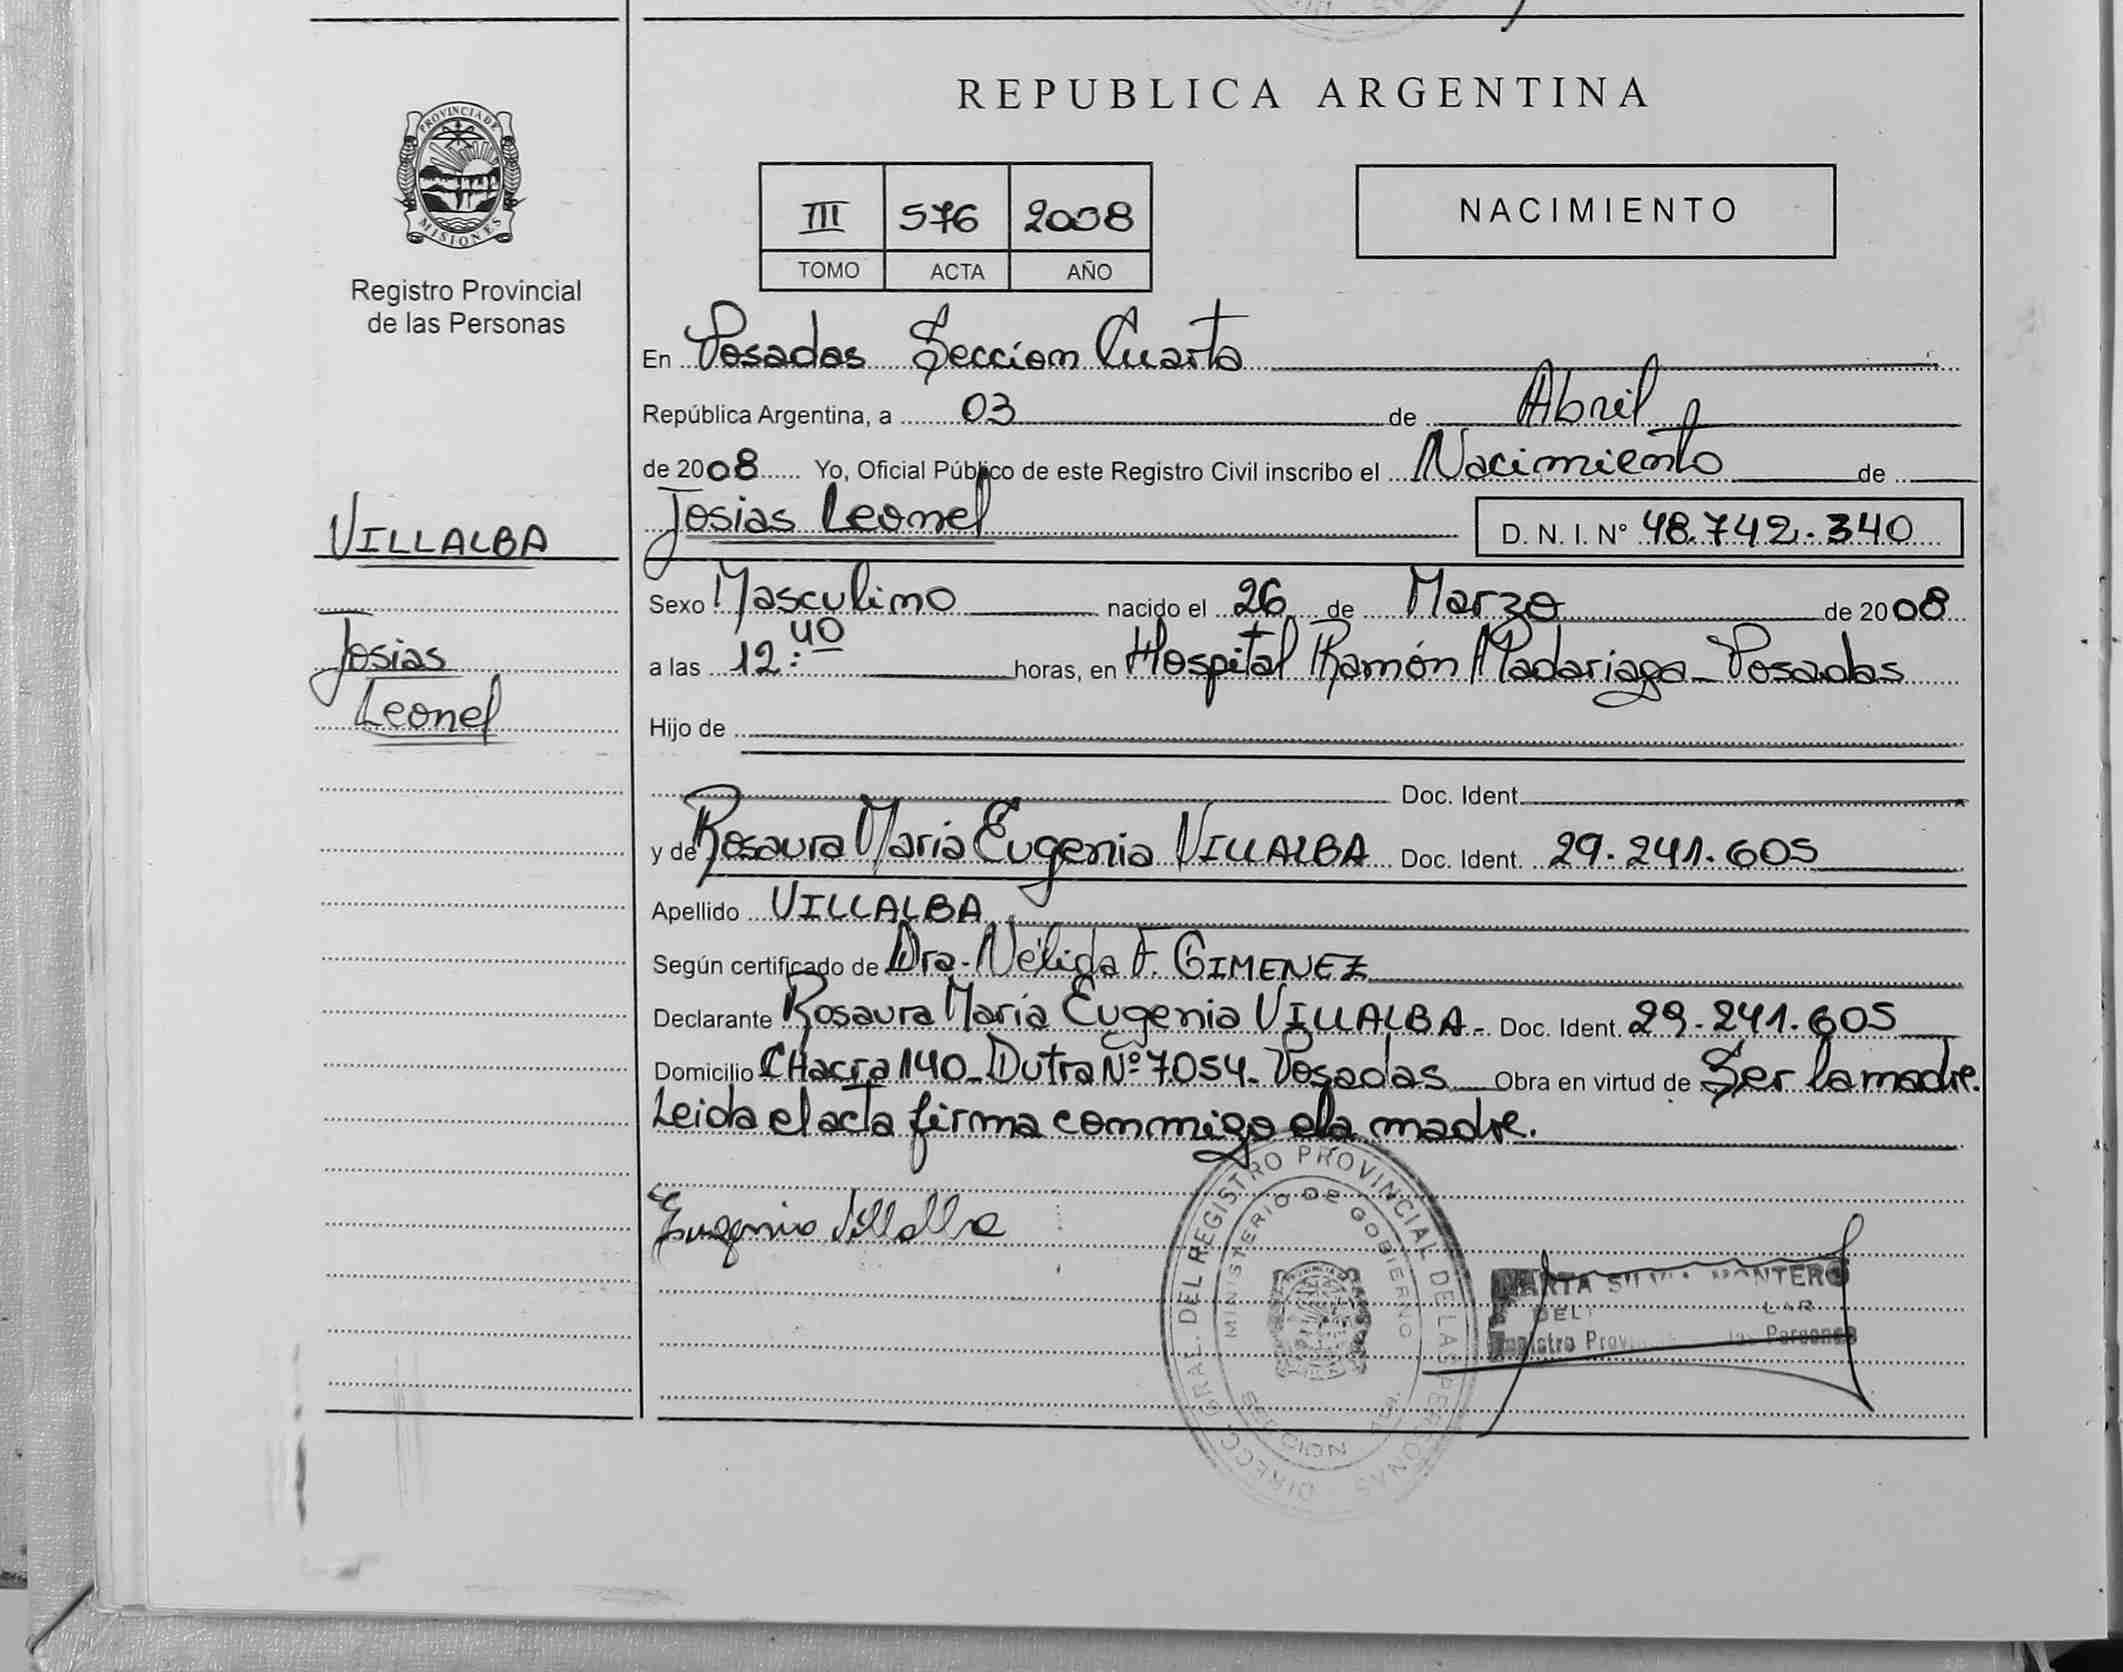 REPUBLICA ARGENTINA
PROVINCIA DE
MISIONES
Registro Provincial
de las Personas
III 576 2008
TOMO ACTA AÑO
NACIMIENTO
En Posadas Seccion Cuarta
República Argentina, a 03 de Abril
de 2008 Yo, Oficial Público de este Registro Civil inscribo el Nacimiento de
VILLALBA
Josias
Leonel
Josias Leonel D. N. I. Nº 48.742.340
Sexo Masculino nacido el 26 de Marzo de 2008
a las 12:40 horas, en Hospital Ramón Madariaga - Posadas
Hijo de
Doc. Ident.
y de Rosaura María Eugenia VILLALBA Doc. Ident. 29.241.605
Apellido VILLALBA
Según certificado de Dra. Nélida F. GIMENEZ
Declarante Rosaura María Eugenia VILLALBA - Doc. Ident. 29.241.605
Domicilio CHacra 140 - Dutra Nº 7054 - Posadas Obra en virtud de Ser la madre.
Leida el acta firma conmigo la madre.
Eugenia Villalba
DIRECC. GRAL. DEL REGISTRO PROVINCIAL DE LAS PERSONAS
MINISTERIO DE GOBIERNO
MONTERO
Personas